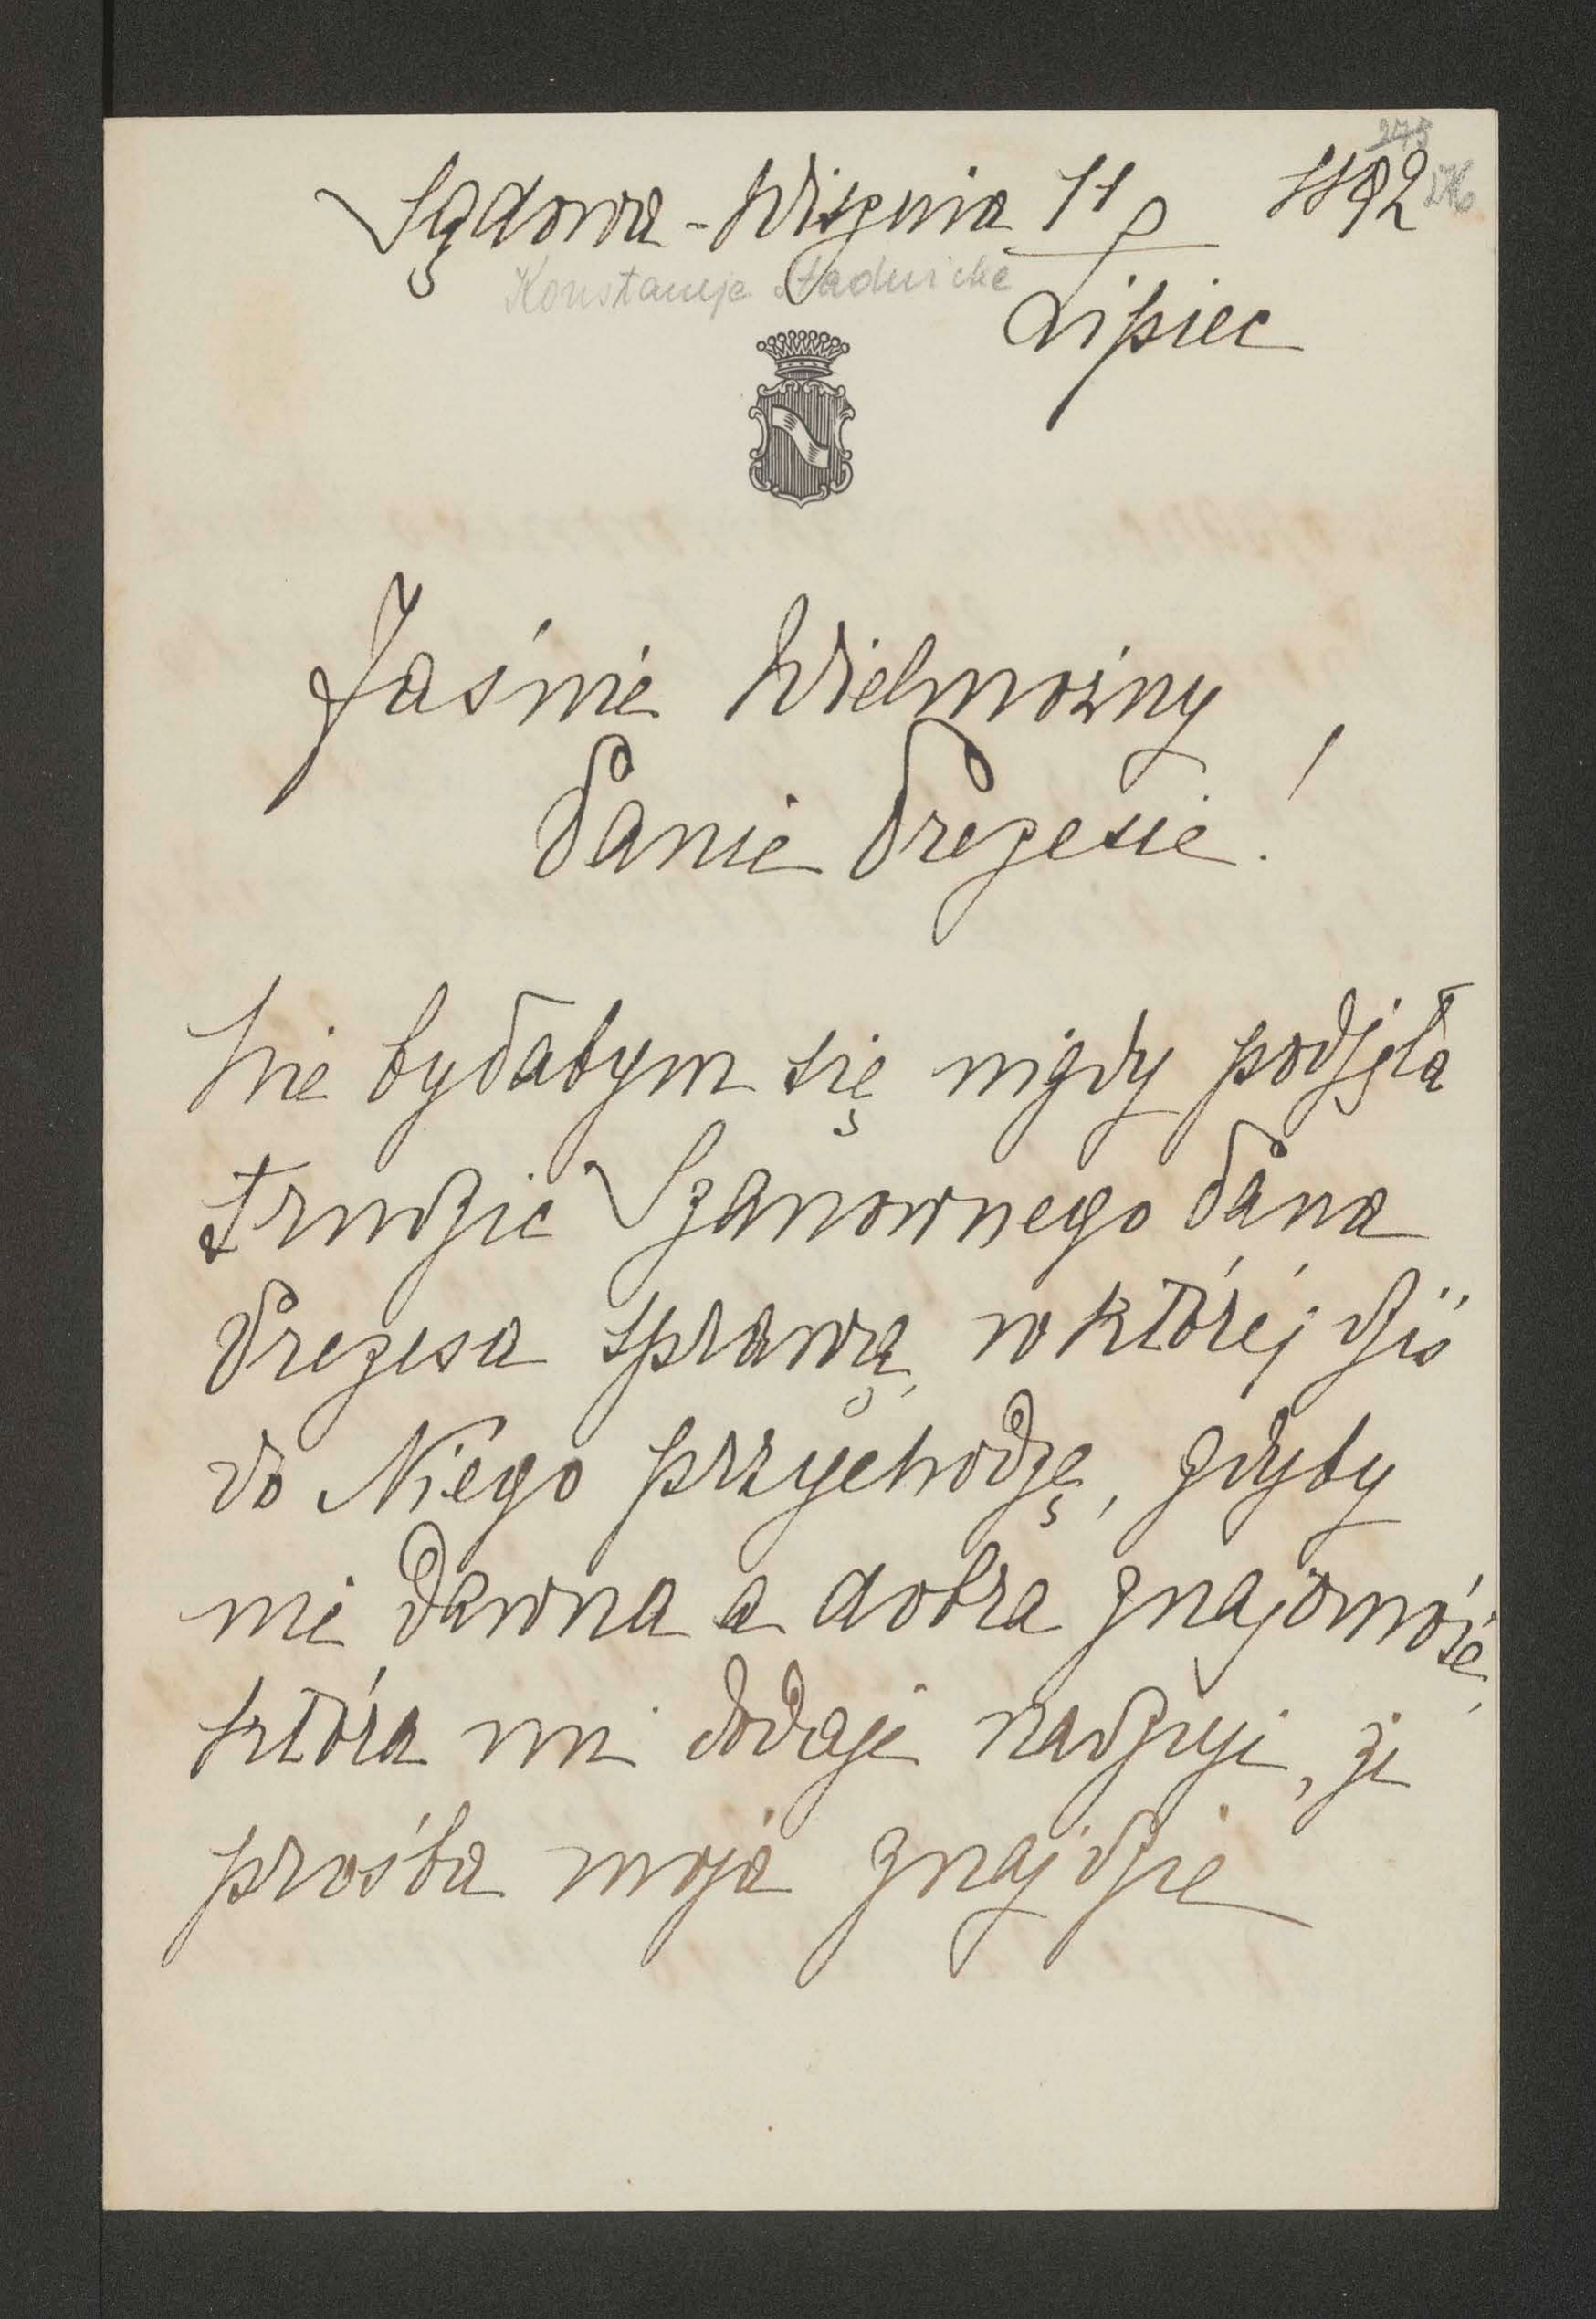 Sądowa-Wisznia 11 1892
Lipiec
Konstancja Stadnicka
Jaśnie Wielmożny
Panie Prezesie!
Nie byłabym się nigdy podjęła
trudzić Szanownego Pana
Prezesa sprawą, w której dziś
do Niego przychodzę, gdyby
nie dawna a dobra znajomość,
która mi dodaje nadzieji, że
prośba moja znajdzie